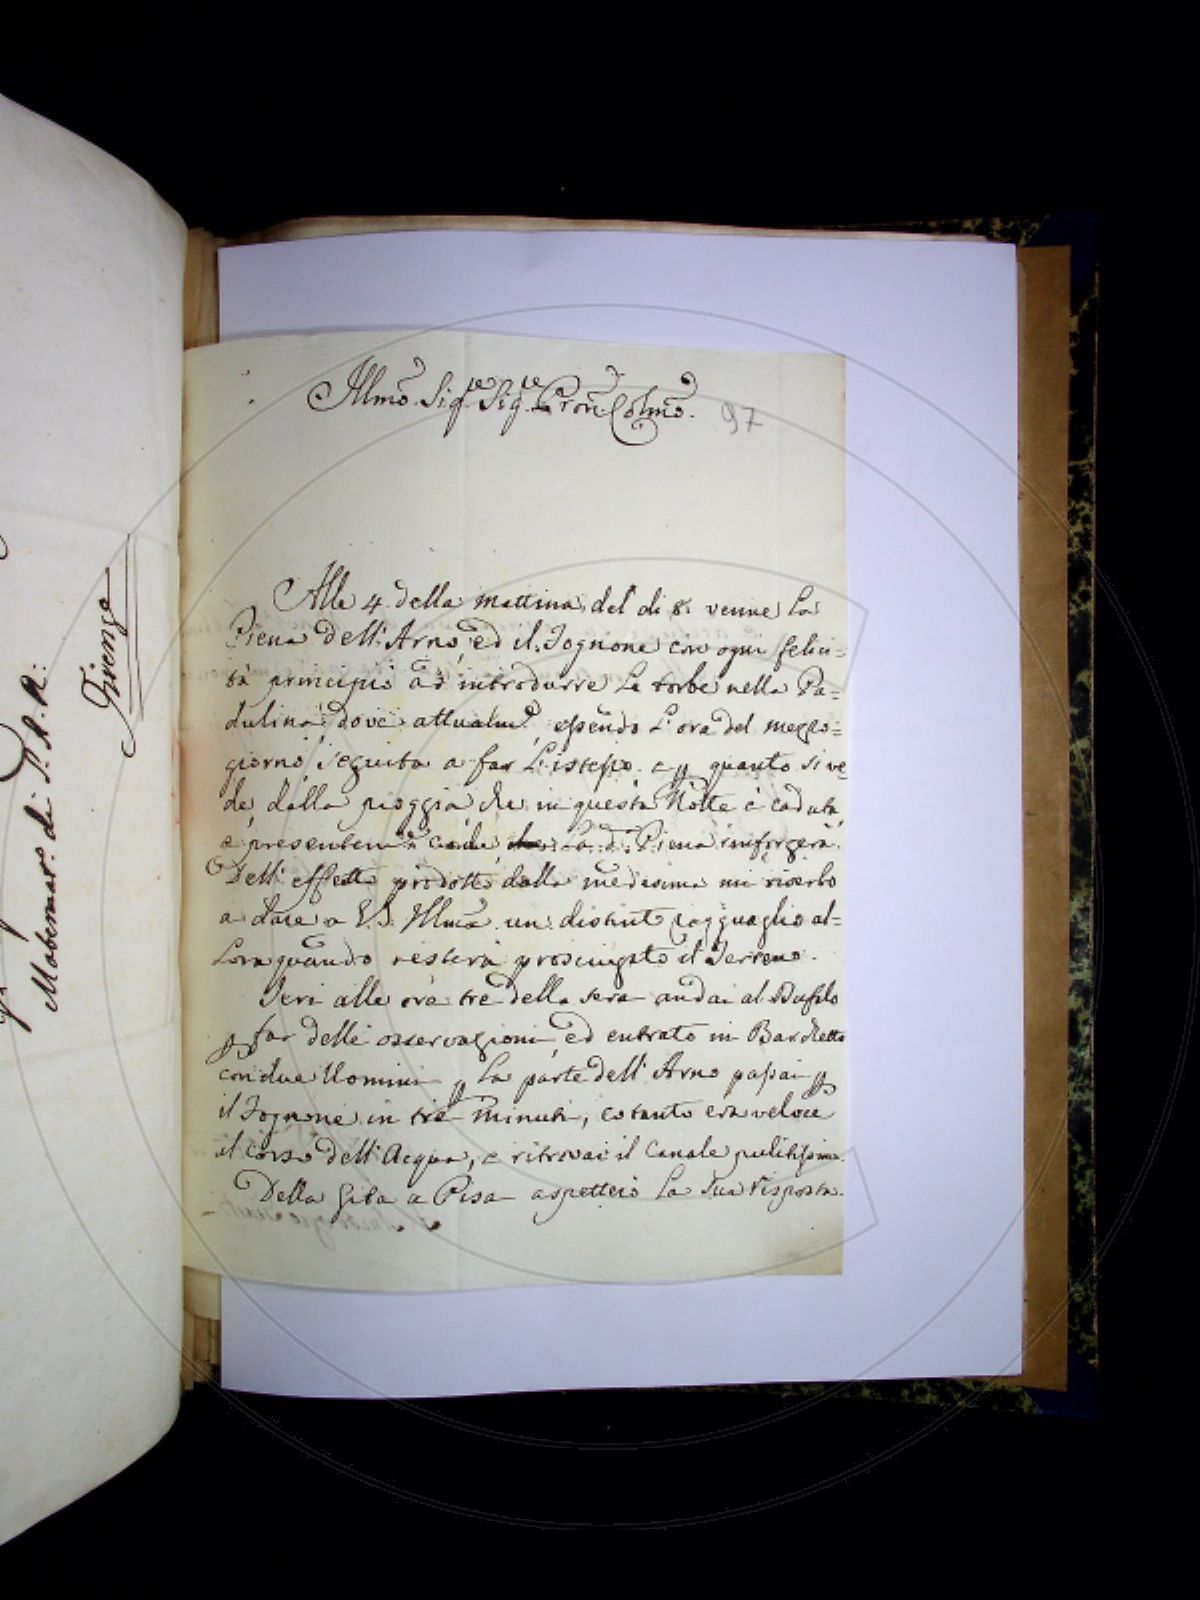 Illmo. Sigre. Sigre. Pron. Colmo.
97
Alle 4 della mattina del di 8. venne la
Piena dell'Arno, ed il Fognone con ogni felici=
tà principiò ad introdurre le torbe nella Pa=
dulina, dove attualme. essendo l'ora del mezzo=
giorno, seguita a far l'istesso. e p quanto si ve
de, dalla pioggia che in questa Notte è caduta
e presentemte. cade la da. Piena rinforzerà.
Dell'effetto prodotto dalla medesima mi riserbo
a dare a V.S. Illma. un distinto ragguaglio al=
lora quando resterà prosciugato il Terreno.
Ieri alle ore tre della sera andai al Bufalo
p far delle osservazioni, ed entrato in Barchetto
con due Uomini p la parte dell'Arno passai p
il Fognone in tre minuti, cotanto era veloce
il corso dell'Acqua, e ritrovai il Canale pulitissimo.
Della Gita a Pisa aspetterò la Sua risposta.
Firenze
di S. A. R.